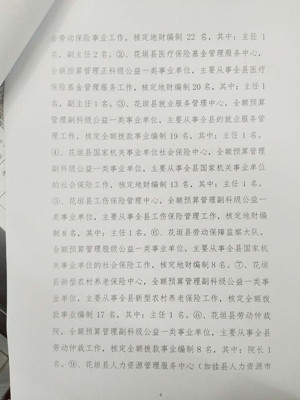 会劳动保险事业工作，核定地财编制 22 名，其中：主任 1
名，副主任 2 名。③、花垣县医疗保险基金管理服务中心，
全额预算管理正科级公益一类事业单位，主要从事全县医疗
保险基金管理工作，核定地财编制 20 名，其中：主任 1
名，副主任 1 名。③、花垣县就业服务管理中心，全额预算
管理副科级公益一类事业单位，主要从事全县的就业服务
管理工作，核定全额拨款事业编制 19 名，其中：主任 1 名。
④、花垣县国家机关事业单位社会保险中心，全额预算管
理副科级公益一类事业单位，主要从事全县国家机关事业单位
的社会保险工作，核定地财编制 13 名，其中：主任 1 名。
⑤、花垣县工伤保险管理中心，全额预算管理副科级公益一
类事业单位，主要从事全县工伤保险管理工作，核定地财编制
8 名，其中：主任 1 名。⑥、花垣县劳动保障监察大队，
全额预算管理股级公益一类事业单位，主要从事全县国家机
关事业单位的社会保险工作，核定地财编制 8 名。⑦、花垣
县新型农村养老保险中心，全额预算管理副科级公益一类事
业单位，主要从事全县新型农村养老保险工作，核定全额拨
款事业编制 17 名，其中：主任 1 名。⑧、花垣县劳动仲裁
院，全额预算管理副科级公益一类事业单位，主要从事全县
劳动仲裁工作，核定全额拨款事业编制 8 名，其中：院长 1
名。⑨、花垣县人力资源管理服务中心（加挂县人力资源市